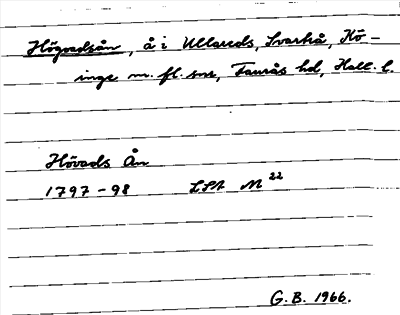 Högvadsån, å i Ullareds, Svartrå, Kö-
inge m. fl. snr, Faurås hd, Hall. l.
Hövads Ån
1797-98 LSA M 22
G.B. 1966.